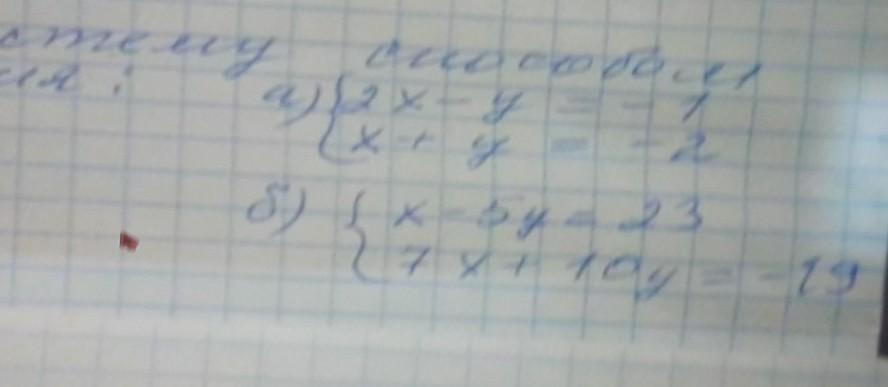 стему способом
ия:
а) { 2x - y = - 1
x + y = - 2
б) { x - 5y = 23
7x + 10y = -19